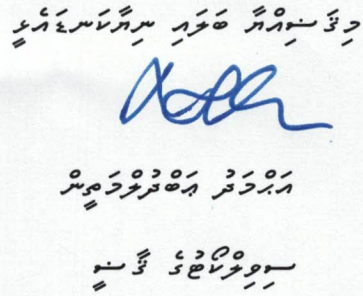 މިޤަޟިއްޔާ ބަލައި ނިޔާކަނޑައެޅީ
އަޙްމަދު ޢަބްދުލްމަތީން
ސިވިލްކޯޓުގެ ޤާޟީ